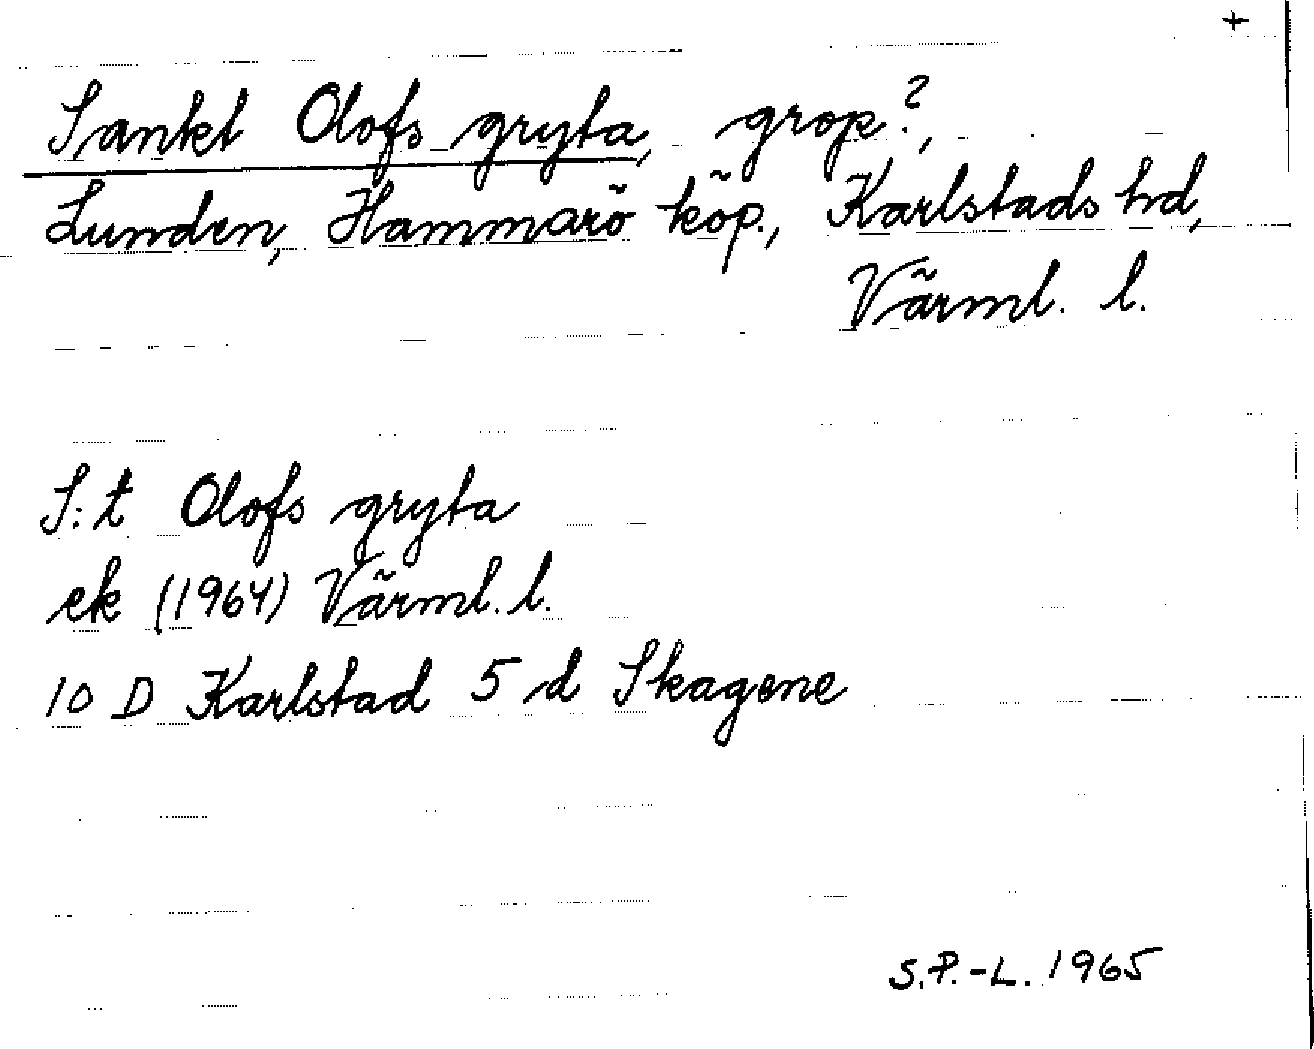 +
Sankt Olofs gryta, grop?,
Lunden, Hammarö köp., Karlstads hd,
Värml. l.
S:t Olofs gryta
ek (1964) Värml. l.
10 D Karlstad 5 d Skagene
S.P.-L. 1965